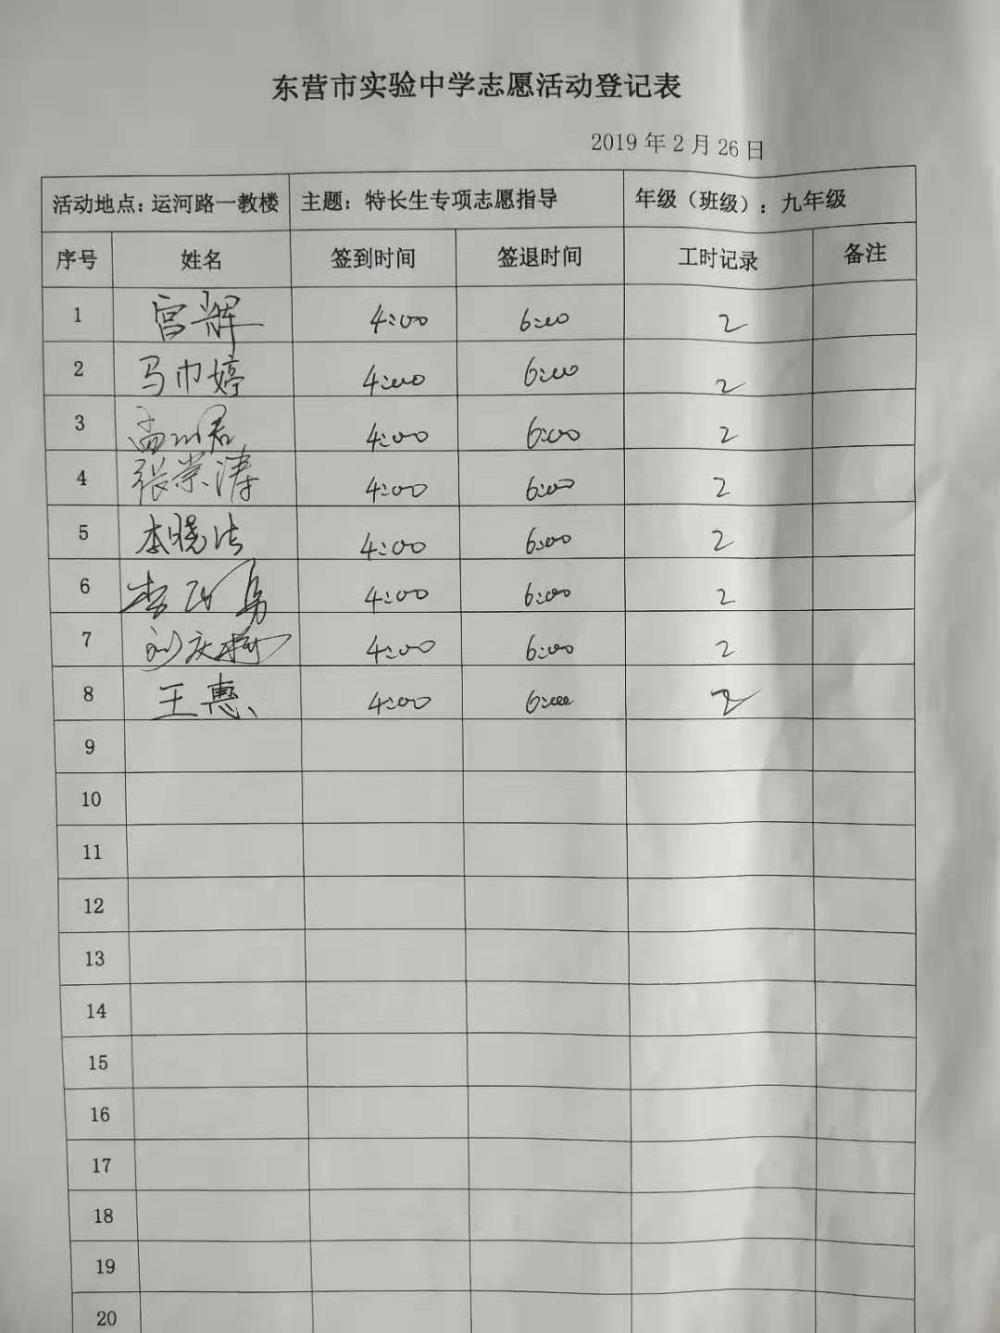 东营市实验中学志愿活动登记表
2019 年 2 月 26 日
活动地点：运河路一教楼 主题：特长生专项志愿指导 年级（班级）：九年级
序号 姓名 签到时间 签退时间 工时记录 备注
1 宫辉 4:00 6:00 2
2 马巾婷 4:00 6:00 2
3 4:00 6:00 2
4 张崇涛 4:00 6:00 2
5 李晓洁 4:00 6:00 2
6 4:00 6:00 2
7 4:00 6:00 2
8 王惠 4:00 6:00 2
9
10
11
12
13
14
15
16
17
18
19
20